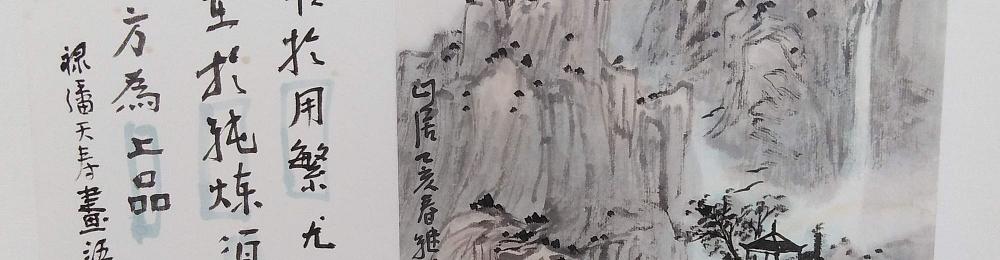 於用繁尤
重於純炼須
方為上品
禄潘天寿畫語
山居乙亥春继